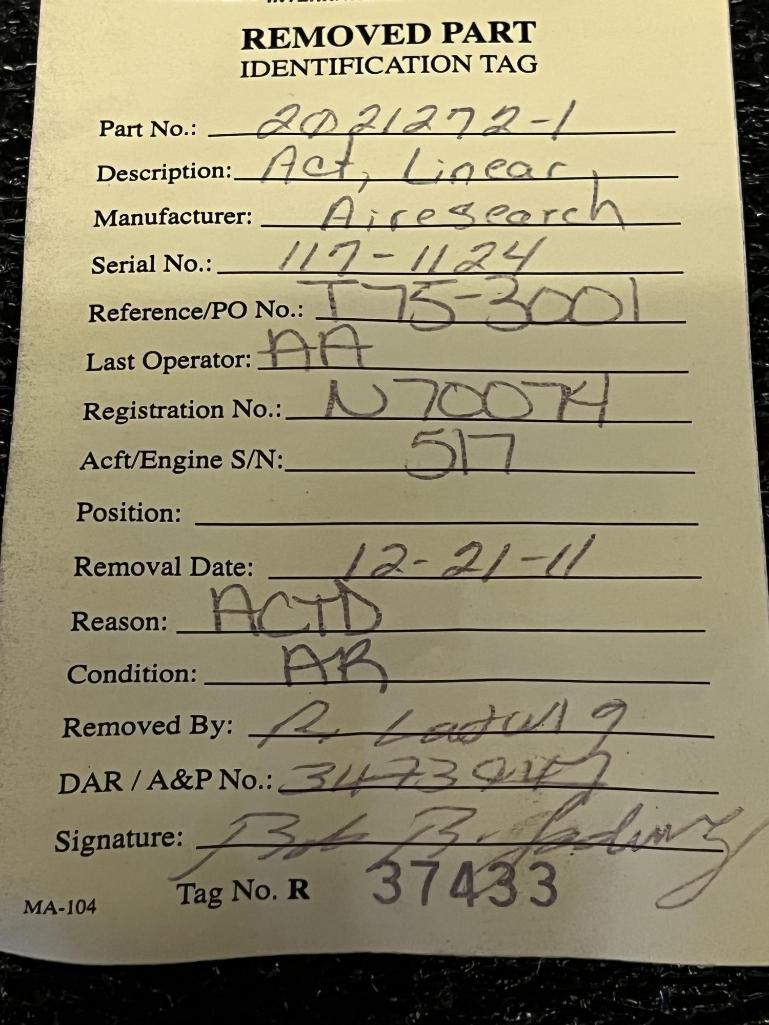 REMOVED PART
IDENTIFICATION TAG
Part No.: 2021272-1
Description: Act, Linear,
Manufacturer: Airesearch
Serial No.: 117-1124
Reference/PO No.: T75-3001
Last Operator: AA
Registration No.: N70074
Acft/Engine S/N: 517
Position:
Removal Date: 12-21-11
Reason: ACTD
Condition: AR
Removed By: R. Ladwig
DAR / A&P No.:
Signature: Bob B. Ladwig
Tag No. R 37433
MA-104